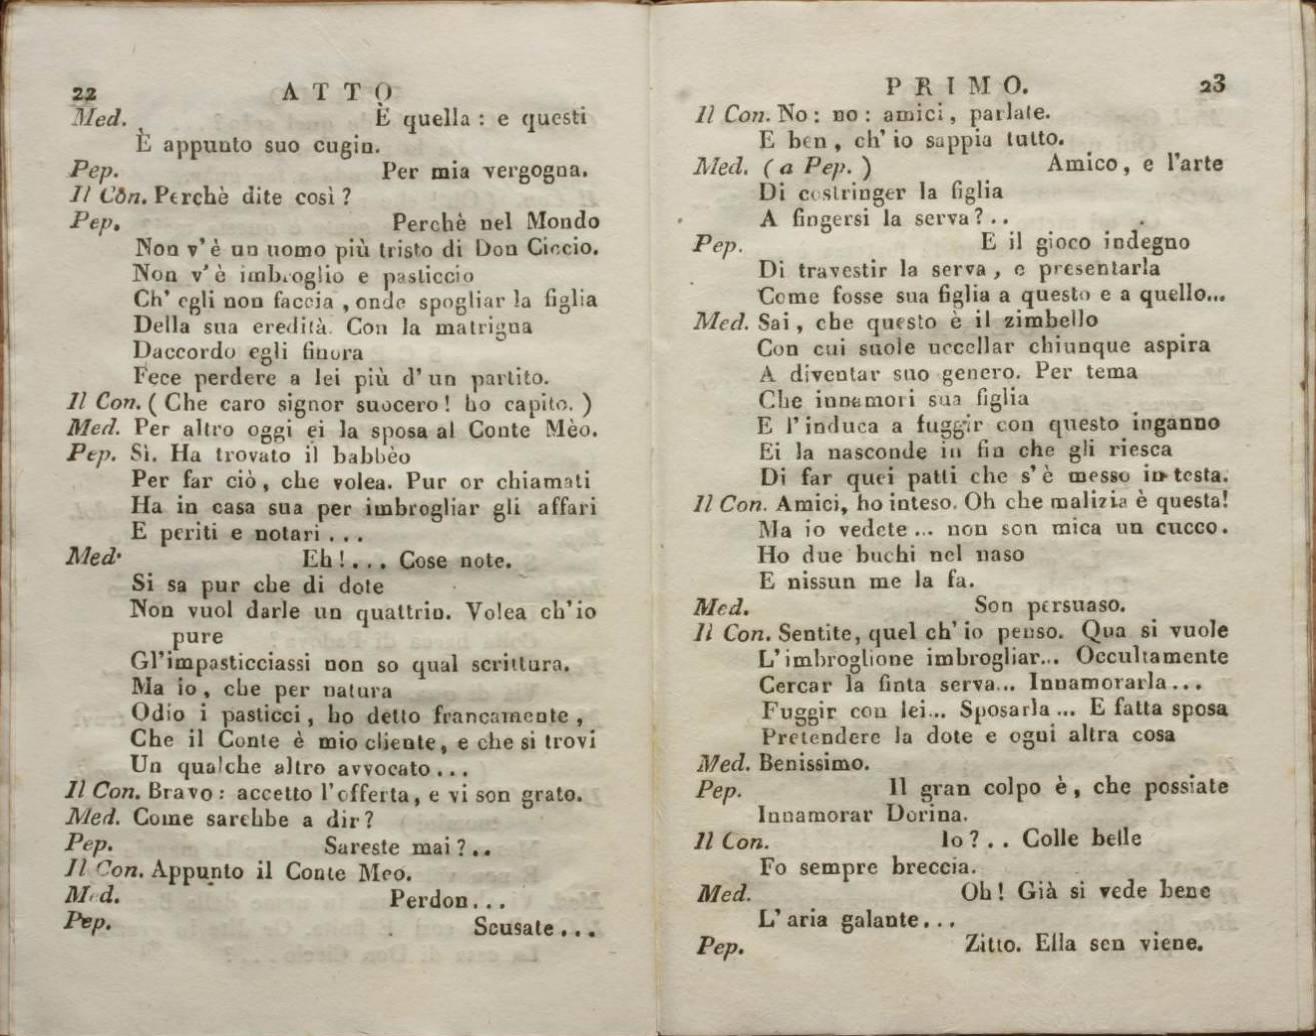 22 ATTO
Med. È quella : e questi
È appunto suo cugin.
Pep. Per mia vergogna.
Il Con. Perchè dite così ?
Pep. Perchè nel Mondo
Non v' è un uomo più tristo di Don Ciccio.
Non v' è imbroglio e pasticcio
Ch' egli non faccia , onde spogliar la figlia
Della sua eredità. Con la matrigna
Daccordo egli finora
Fece perdere a lei più d' un partito.
Il Con. ( Che caro signor suocero ! ho capito. )
Med. Per altro oggi ei la sposa al Conte Mèo.
Pep. Sì. Ha trovato il babbèo
Per far ciò , che volea. Pur or chiamati
Ha in casa sua per imbrogliar gli affari
E periti e notari . . .
Med. Eh ! . . . Cose note.
Si sa pur che di dote
Non vuol darle un quattrin. Volea ch' io
pure
Gl' impasticciassi non so qual scrittura.
Ma io , che per natura
Odio i pasticci , ho detto francamente ,
Che il Conte è mio cliente, e che si trovi
Un qualche altro avvocato . . .
Il Con. Bravo : accetto l' offerta, e vi son grato.
Med. Come sarebbe a dir ?
Pep. Sareste mai ? . .
Il Con. Appunto il Conte Meo.
Med. Perdon . . .
Pep. Scusate . . .
PRIMO. 23
Il Con. No : no : amici , parlate.
E ben , ch' io sappia tutto.
Med. ( a Pep. ) Amico , e l'arte
Di costringer la figlia
A fingersi la serva ? . .
Pep. E il gioco indegno
Di travestir la serva , e presentarla
Come fosse sua figlia a questo e a quello...
Med. Sai , che questo è il zimbello
Con cui suole uccellar chiunque aspira
A diventar suo genero. Per tema
Che innamori sua figlia
E l' induca a fuggir con questo inganno
Ei la nasconde in fin che gli riesca
Di far quei patti che s' è messo in testa.
Il Con. Amici, ho inteso. Oh che malizia è questa!
Ma io vedete ... non son mica un cucco.
Ho due buchi nel naso
E nissun me la fa.
Med. Son persuaso.
Il Con. Sentite, quel ch' io penso. Qua si vuole
L' imbroglione imbrogliar... Occultamente
Cercar la finta serva... Innamorarla . . .
Fuggir con lei... Sposarla ... E fatta sposa
Pretendere la dote e ogni altra cosa
Med. Benissimo.
Pep. Il gran colpo è , che possiate
Innamorar Dorina.
Il Con. Io ? . . Colle belle
Fo sempre breccia.
Med. Oh ! Già si vede bene
L' aria galante . . .
Pep. Zitto. Ella sen viene.